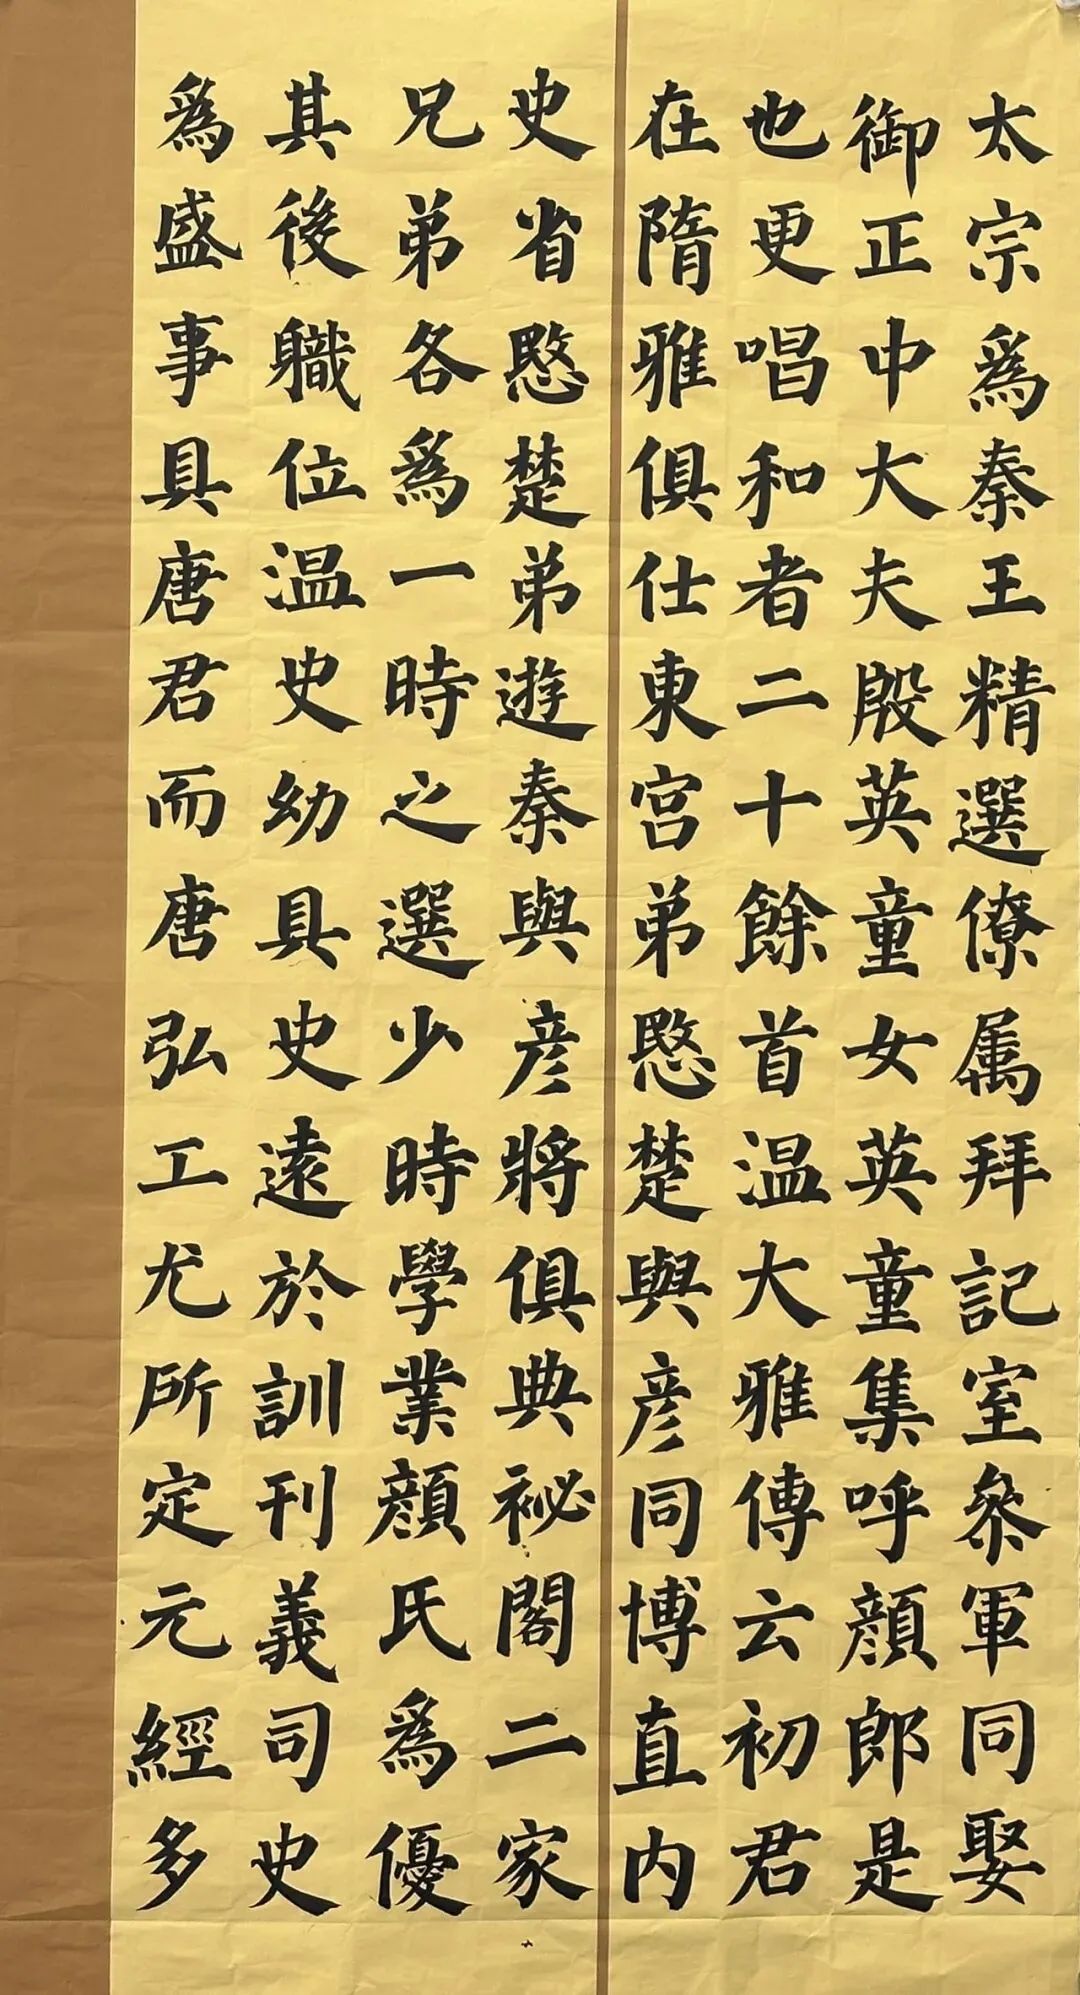 太宗爲秦王精選僚属拜記室參軍同娶
御正中大夫殷英童女英童集呼顔郎是
也更唱和者二十餘首温大雅傳云初君
在隋雅俱仕東宮弟愍楚與彦同博直内
史省愍楚弟遊秦與彦將俱典祕閣二家
兄弟各爲一時之選少時學業顔氏爲優
其後職位温史幼具史遠於訓刊義司史
爲盛事具唐君而唐弘工尤所定元經多